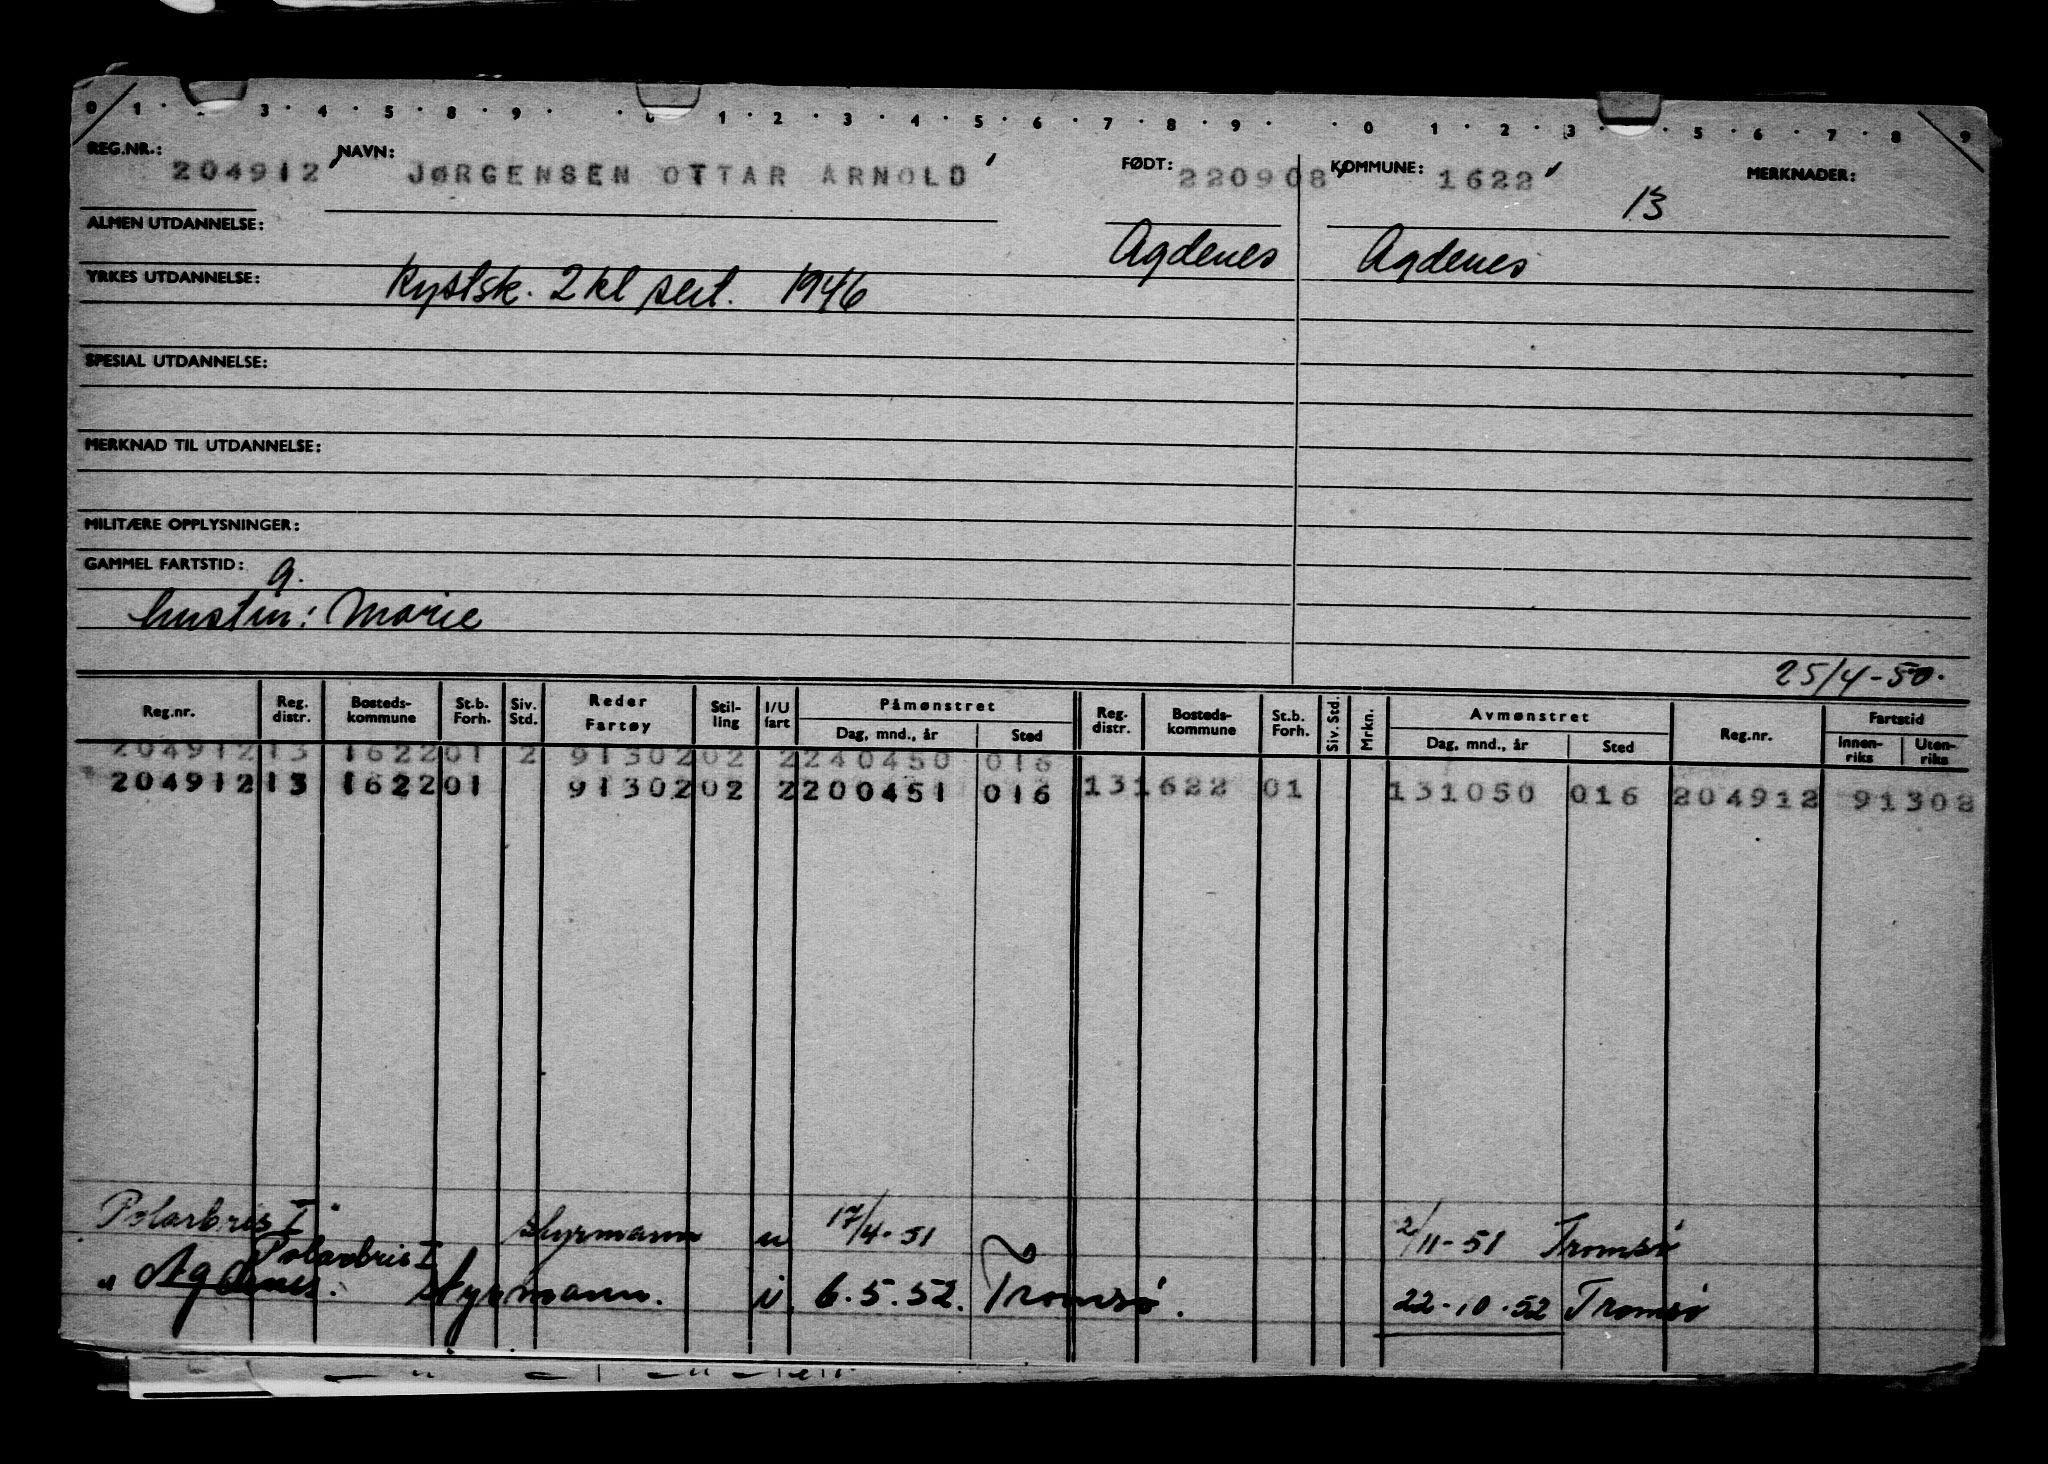 0 1 · 3 · 4 · 5 · 8 · 9 · · 0 1 · 2 · 3 · 4 · 5 · 6 · 7 · 8 · 9 · · 0 1 · 2 · 3 · 5 · 6 · 7 · 8 · 9
REG.NR.: 204912 NAVN: JØRGENSEN OTTAR ARNOLD FØDT: 220908 KOMMUNE: 1622 MERKNADER:
13
ALMEN UTDANNELSE: Agdenes Agdenes
YRKES UTDANNELSE: Kystsk. 2 kl sert. 1946
SPESIAL UTDANNELSE:
MERKNAD TIL UTDANNELSE:
MILITÆRE OPPLYSNINGER:
GAMMEL FARTSTID: g.
hustru: Marie
25/4-50.
Reg.nr. Reg. distr. Bosteds-kommune St.b. Forh. Siv. Std. Reder Fartøy Stil-ling I/U fart Påmønstret Dag, mnd., år Sted Reg. distr. Bosteds-kommune St.b. Forh. Siv. Std. Mrkn. Avmønstret Dag, mnd., år Sted Reg.nr. Fartstid Innen-riks Uten-riks
204912 13 1622 01 2 91302 02 2 240450 016
204912 13 1622 01 91302 02 2 200451 016 13 1622 01 131050 016 204912 91302
Polarbris I styrmann u 17/4-51 2/11-51 Tromsø
Polarbris I
" Agdenes. styrmann. u. 6.5.52. Tromsø. 22-10-52 Tromsø